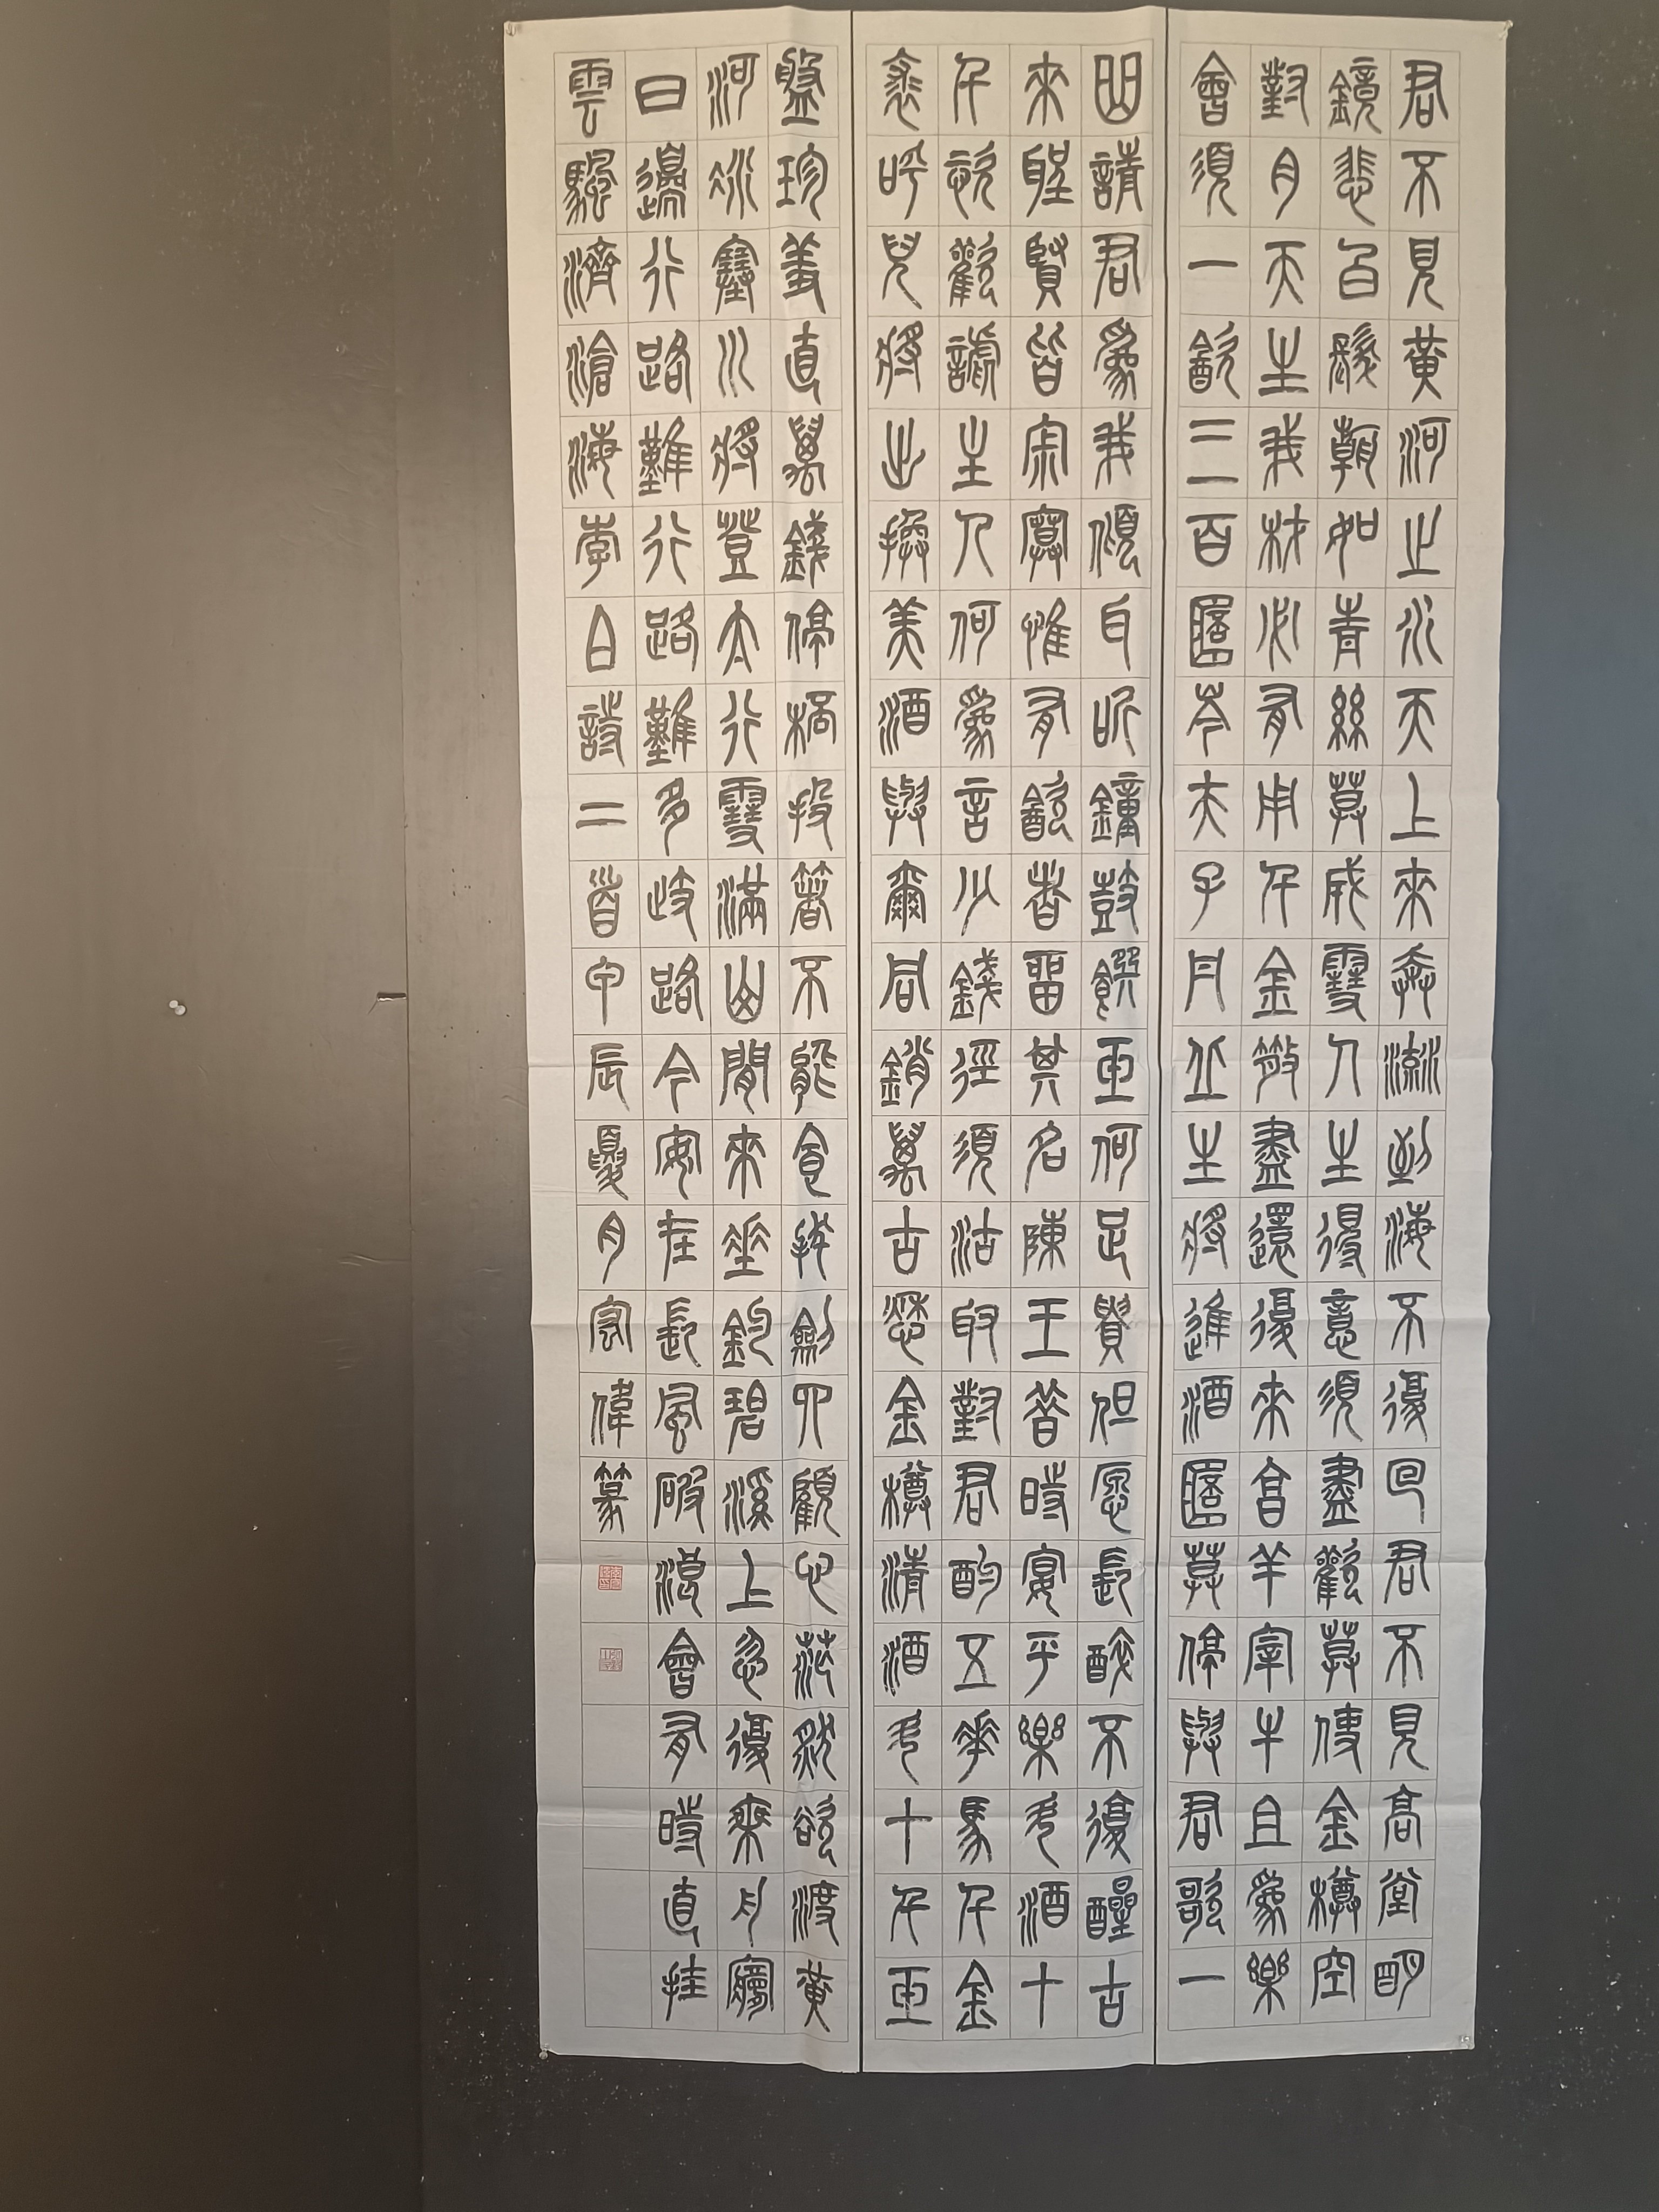 君不見黃河之水天上來奔流到海不復回君不見高堂明
鏡悲白髮朝如青絲莫成雪人生得意須盡歡莫使金樽空
對月天生我材必有用千金散盡還復來烹羊宰牛且為樂
會須一飲三百杯岑夫子丹丘生將進酒杯莫停與君歌一
曲請君為我傾耳听鐘鼓饌玉何足貴但願長醉不復醒古
來聖賢皆寂寞惟有飲者留其名陳王昔時宴平樂斗酒十
千恣歡謔主人何為言少錢徑須沽取對君酌五花馬千金
裘呼兒將出換美酒與爾同銷萬古愁金樽清酒斗十千玉
盤珍羞直萬錢停杯投箸不能食拔劍四顧心茫然欲渡黃
河冰塞川將登太行雪滿山閒來坐釣碧溪上忽復乘舟夢
日邊行路難行路難多歧路今安在長風破浪會有時直挂
雲帆濟滄海李白詩二首甲辰夏月偉篆